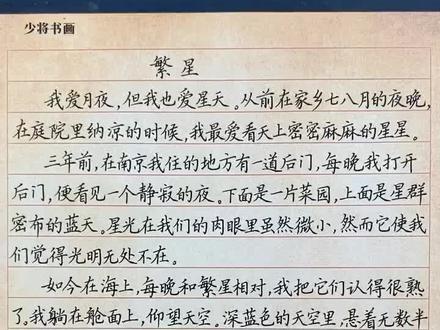 少将书画
繁星
我爱月夜,但我也爱星天。从前在家乡七八月的夜晚,
在庭院里纳凉的时候,我最爱看天上密密麻麻的星星。
三年前,在南京我住的地方有一道后门,每晚我打开
后门,便看见一个静寂的夜。下面是一片菜园,上面是星群
密布的蓝天。星光在我们的肉眼里虽然微小,然而它使我
们觉得光明无处不在。
如今在海上,每晚和繁星相对,我把它们认得很熟
了。我躺在舱面上,仰望天空。深蓝色的天空里,悬着无数半